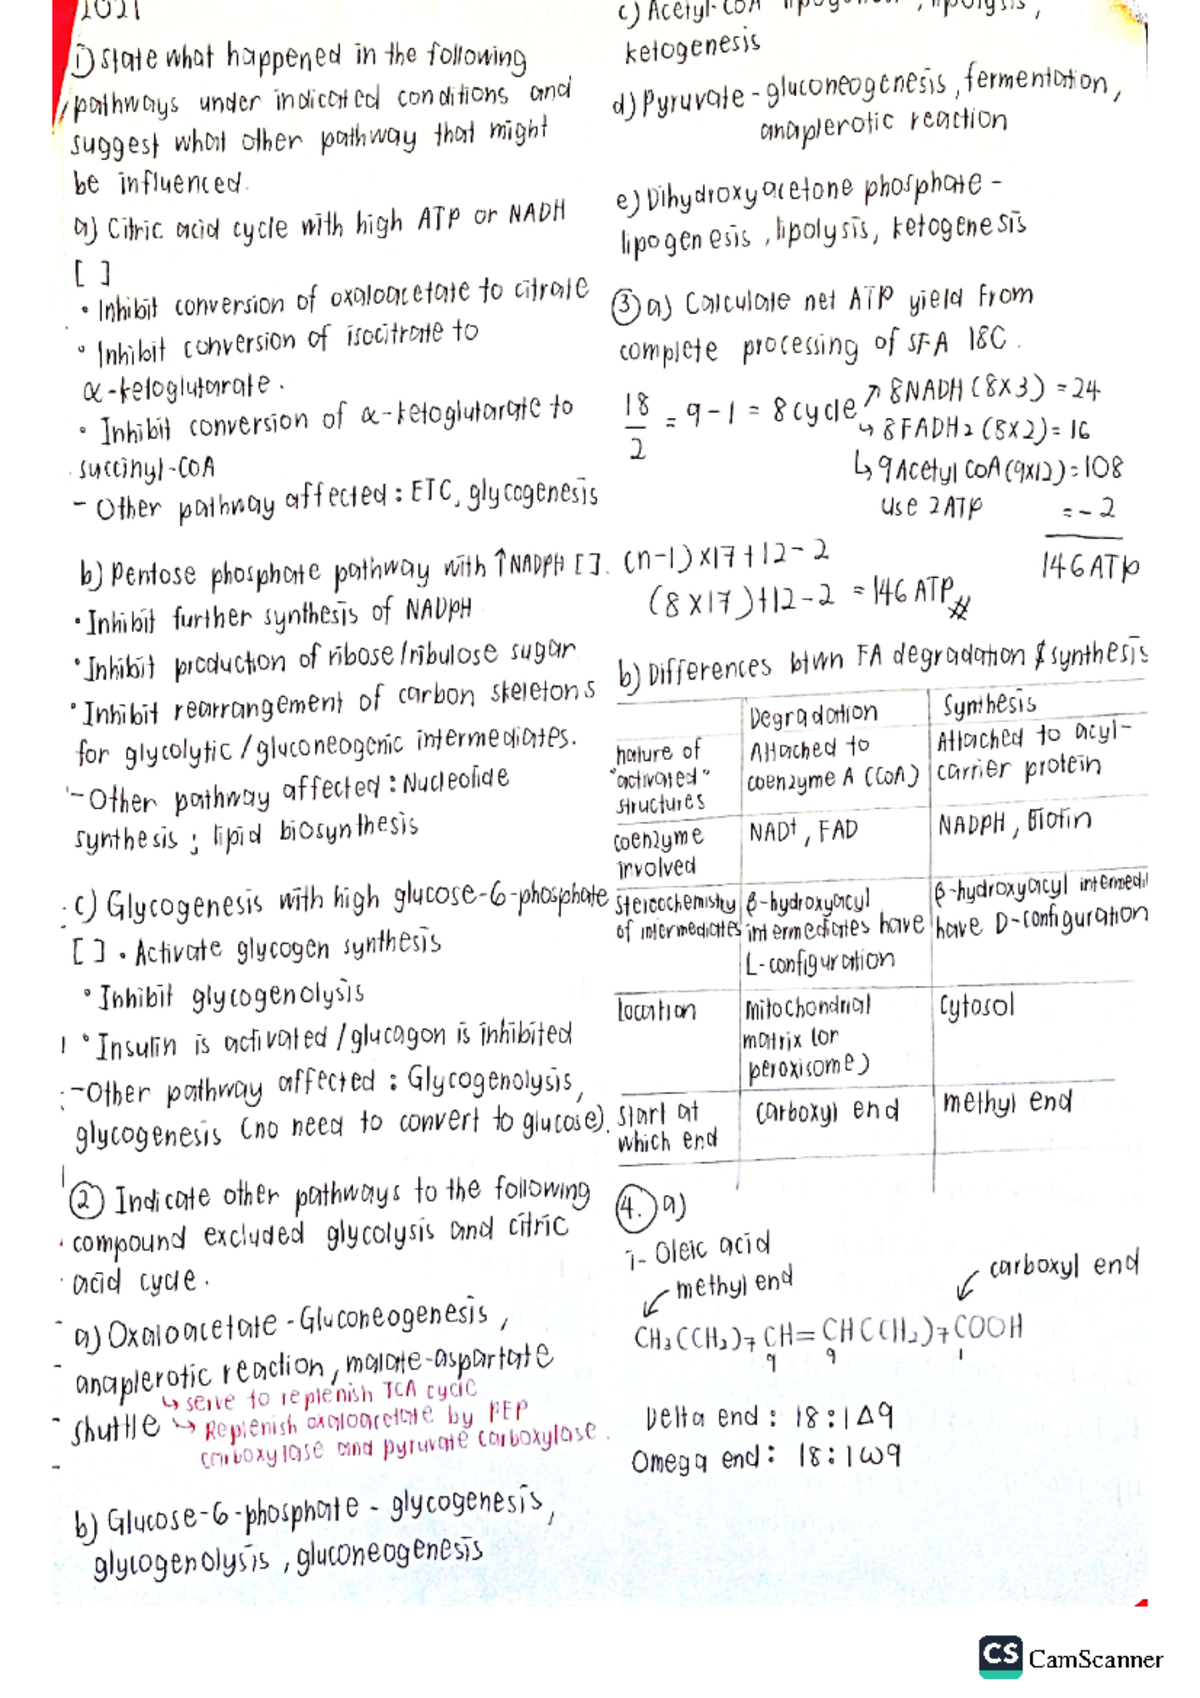 2021
1) State what happened in the following
pathways under indicated conditions and
suggest what other pathway that might
be influenced.
a) Citric acid cycle with high ATP or NADH
[ ]
• Inhibit conversion of oxaloacetate to citrate
• Inhibit conversion of isocitrate to
α-ketoglutarate.
• Inhibit conversion of α-ketoglutarate to
succinyl-CoA
- Other pathway affected : ETC, glycogenesis
b) Pentose phosphate pathway with ↑NADPH [ ].
• Inhibit further synthesis of NADPH
• Inhibit production of ribose/ribulose sugar
• Inhibit rearrangement of carbon skeletons
for glycolytic / gluconeogenic intermediates.
- Other pathway affected : Nucleotide
synthesis ; lipid biosynthesis
c) Glycogenesis with high glucose-6-phosphate
[ ] • Activate glycogen synthesis
• Inhibit glycogenolysis
• Insulin is activated / glucagon is inhibited
- Other pathway affected : Glycogenolysis,
glycogenesis (no need to convert to glucose).
② Indicate other pathways to the following
compound excluded glycolysis and citric
acid cycle.
a) Oxaloacetate - Gluconeogenesis,
anaplerotic reaction, malate-aspartate
↳ serve to replenish TCA cycle
shuttle ↳ Replenish oxaloacetate by PEP
carboxylase and pyruvate carboxylase.
b) Glucose-6-phosphate - glycogenesis,
glycogenolysis, gluconeogenesis
c) Acetyl-CoA lipogenesis, lipolysis,
ketogenesis
d) Pyruvate - gluconeogenesis, fermentation,
anaplerotic reaction
e) Dihydroxyacetone phosphate -
lipogenesis, lipolysis, ketogenesis
③ a) Calculate net ATP yield from
complete processing of SFA 18C.
18/2 = 9 - 1 = 8 cycle ↗ 8NADH (8x3) = 24
↳ 8FADH2 (8x2) = 16
↳ 9 Acetyl CoA (9x12) = 108
use 2ATP = - 2
146 ATP
(n-1) x17 + 12 - 2
(8 x 17) + 12 - 2 = 146 ATP #
b) Differences btwn FA degradation & synthesis
Degradation Synthesis
nature of "activated" structures Attached to coenzyme A (CoA) Attached to acyl-carrier protein
coenzyme involved NAD+, FAD NADPH, Biotin
stereochemistry of intermediates β-hydroxyacyl intermediates have L-configuration β-hydroxyacyl intermedi have D-configuration
location mitochondrial matrix (or peroxisome) cytosol
start at which end carboxyl end methyl end
④ a)
i- Oleic acid
methyl end carboxyl end
CH3(CH2)7 CH=CHC(H2)7COOH
9 9 1
Delta end : 18:1Δ9
Omega end : 18:1ω9
CS CamScanner